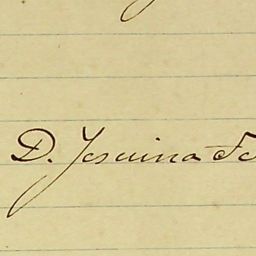 D. Jesuina de